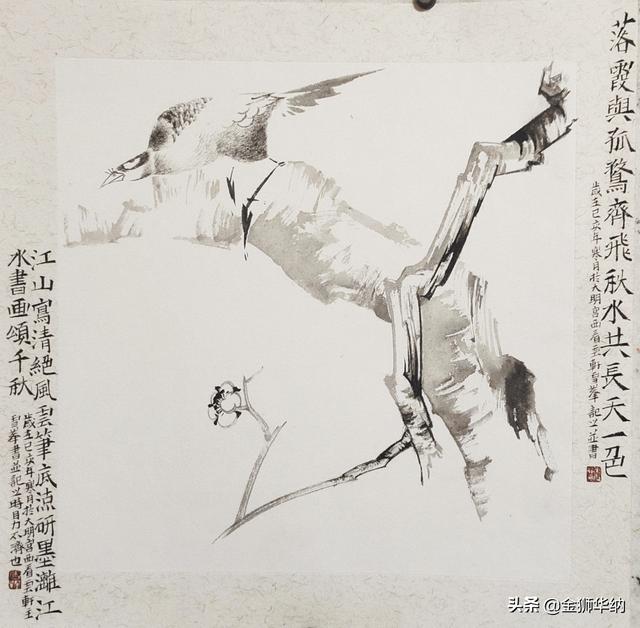 落霞與孤鶩齊飛秋水共長天一色
歲在己亥年寒月於大明宮西看雲軒
記之並書
江山寫清絕風雲筆底涼研墨灕江
水書画頌千秋
歲在己亥年寒月於大明宮西看雲軒主
書並記之時目力不濟也
头条 @金狮华纳